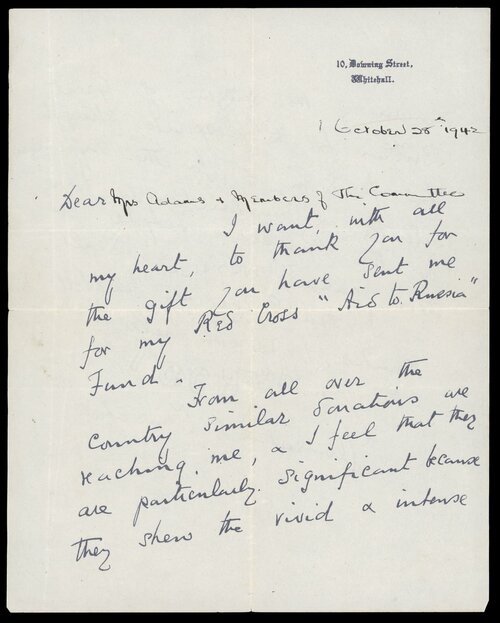 10, Downing Street,
Whitehall.
October 28th 1942
Dear Mrs Adams & Members of The Committee
I want, with all
my heart, to thank you for
the gift you have sent me
for my Red Cross "Aid to Russia"
Fund.
From all over the
country similar donations are
reaching me, & I feel that they
are particularly significant because
they shew the vivid & intense